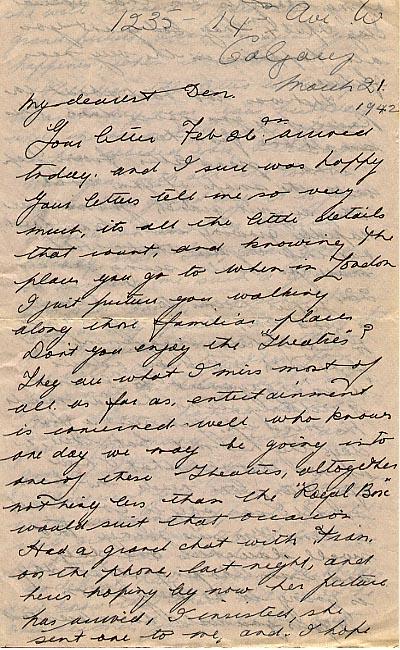 1235 - 14 Ave W
Calgary
March 21.
1942
My dearest Den.
Your letter Feb 26th arrived
today. and I sure was happy
Your letters tell me so very
much, its all the little details
that count, and knowing the
places you go to when in London
I just picture you walking
along those familiar places
Don't you enjoy the "Theatres"?
They are what I miss most of
all. as far as, entertainment
is concerned well who knows
one day we may be going into
one of these Theatres, altogether
nothing less than the "Royal Box"
would suit that occasion
Had a grand chat with Fran.
on the phone, last night, and
heres hoping by now her picture
has arrived, I insisted, she
sent one to me, and. I hope